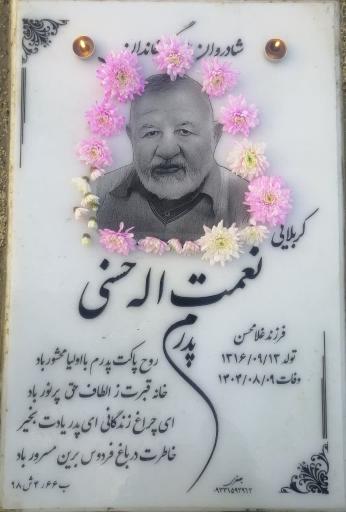 شادروان خاندان
کربلایی
نعمت اله حسنی
پدرم
فرزند غلامحسن
تولد ۱۳۱۶/۰۹/۱۳
وفات ۱۴۰۳/۰۸/۰۹
روح پاکت پدرم با اولیا محشور باد
خانه قبرت ز الطاف حق پرنور باد
ای چراغ زندگانی ای پدر یادت بخیر
خاطرت در باغ فردوس برین مسرور باد
ب۶۶ر۴ش۹۸
۰۹۳۳۱۵۹۲۹۱۲